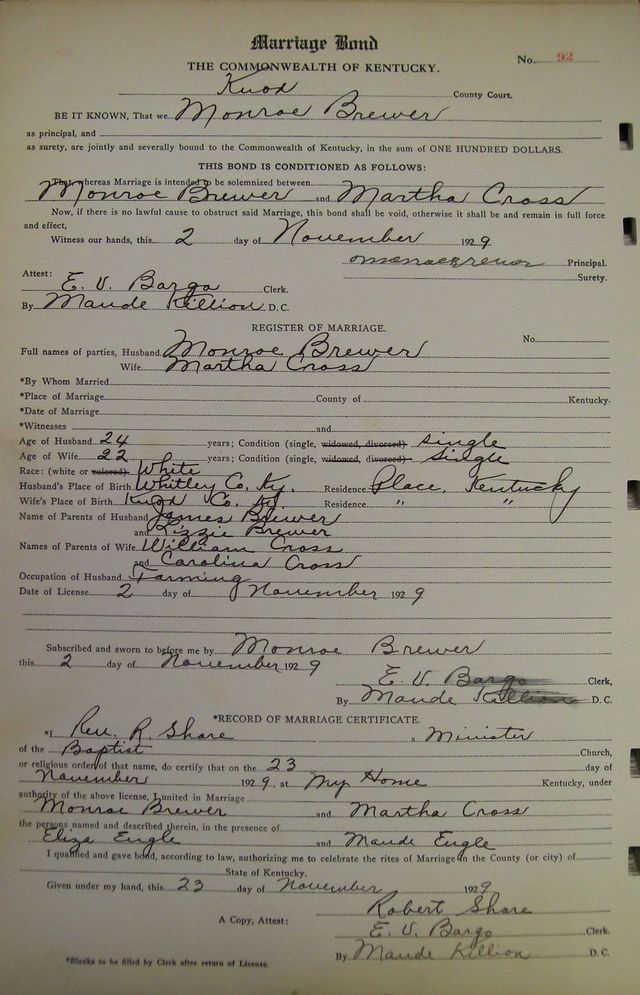 Marriage Bond
THE COMMONWEALTH OF KENTUCKY. No. 92
Knox County Court.
BE IT KNOWN, That we Monroe Brewer
as principal, and
as surety, are jointly and severally bound to the Commonwealth of Kentucky, in the sum of ONE HUNDRED DOLLARS.
THIS BOND IS CONDITIONED AS FOLLOWS:
That whereas Marriage is intended to be solemnized between
Monroe Brewer and Martha Cross
Now, if there is no lawful cause to obstruct said Marriage, this bond shall be void, otherwise it shall be and remain in full force
and effect,
Witness our hands, this 2 day of November 1929
Monroe Brewer Principal.
Attest: Surety.
E. V. Bargo Clerk.
By Maude Killion D. C.
REGISTER OF MARRIAGE.
No.
Full names of parties, Husband Monroe Brewer
Wife Martha Cross
*By Whom Married
*Place of Marriage County of Kentucky.
*Date of Marriage
*Witnesses and
Age of Husband 24 years; Condition (single, widowed, divorced) single
Age of Wife 22 years; Condition (single, widowed, divorced) Single
Race: (white or colored) White
Husband's Place of Birth Whitley Co. Ky. Residence Place, Kentucky
Wife's Place of Birth Knox Co. Ky. Residence " "
Name of Parents of Husband James Brewer
and Lizzie Brewer
Names of Parents of Wife William Cross
and Carolina Cross
Occupation of Husband Farming
Date of License 2 day of November 1929
Subscribed and sworn to before me by Monroe Brewer
this 2 day of November 1929
E. V. Bargo Clerk,
By Maude Killion D. C.
*RECORD OF MARRIAGE CERTIFICATE.
*I Rev. R. Share a Minister
of the Baptist Church,
or religious order of that name, do certify that on the 23 day of
November 1929, at My Home Kentucky, under
authority of the above license, I united in Marriage
Monroe Brewer and Martha Cross
the persons named and described therein, in the presence of
Eliza Engle and Maude Engle
I qualified and gave bond, according to law, authorizing me to celebrate the rites of Marriage in the County (or city) of
State of Kentucky.
Given under my hand, this 23 day of November 1929
Robert Share
A Copy, Attest: E. V. Bargo Clerk.
By Maude Killion D. C.
*Blanks to be filled by Clerk after return of License.